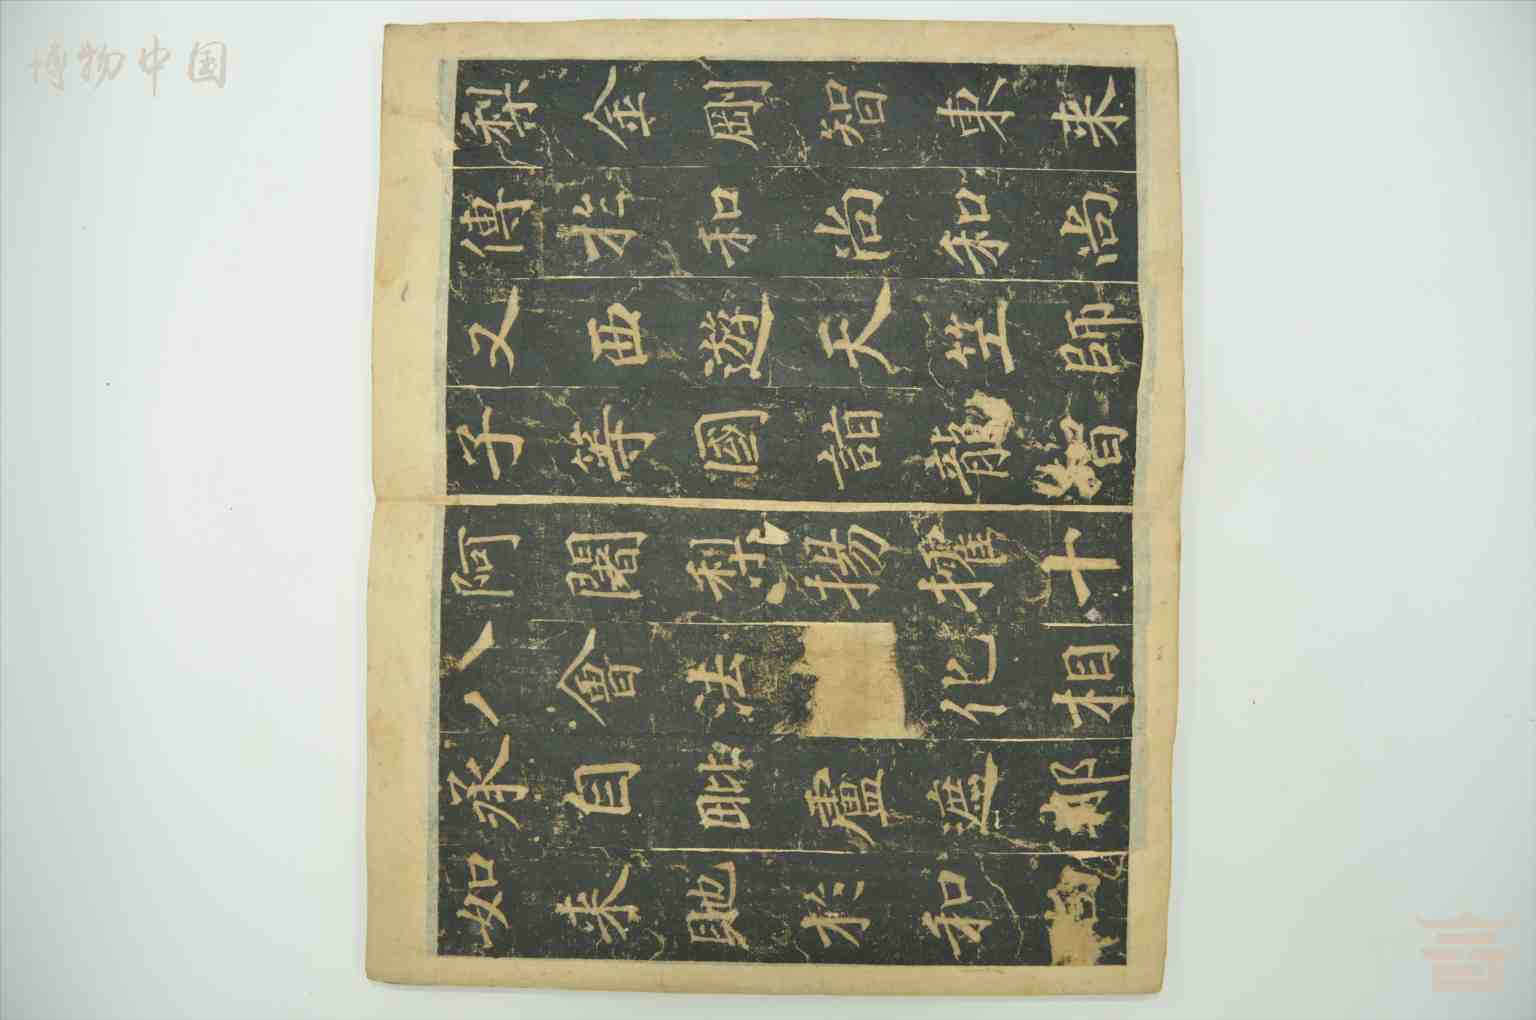 梨金剛智東来
傳於和尚和尚
又西遊天竺師
子等國詣龍智
阿闍梨揚攉十
八會法化相
承自毗盧遮那
如来貤於和尚
博物中国